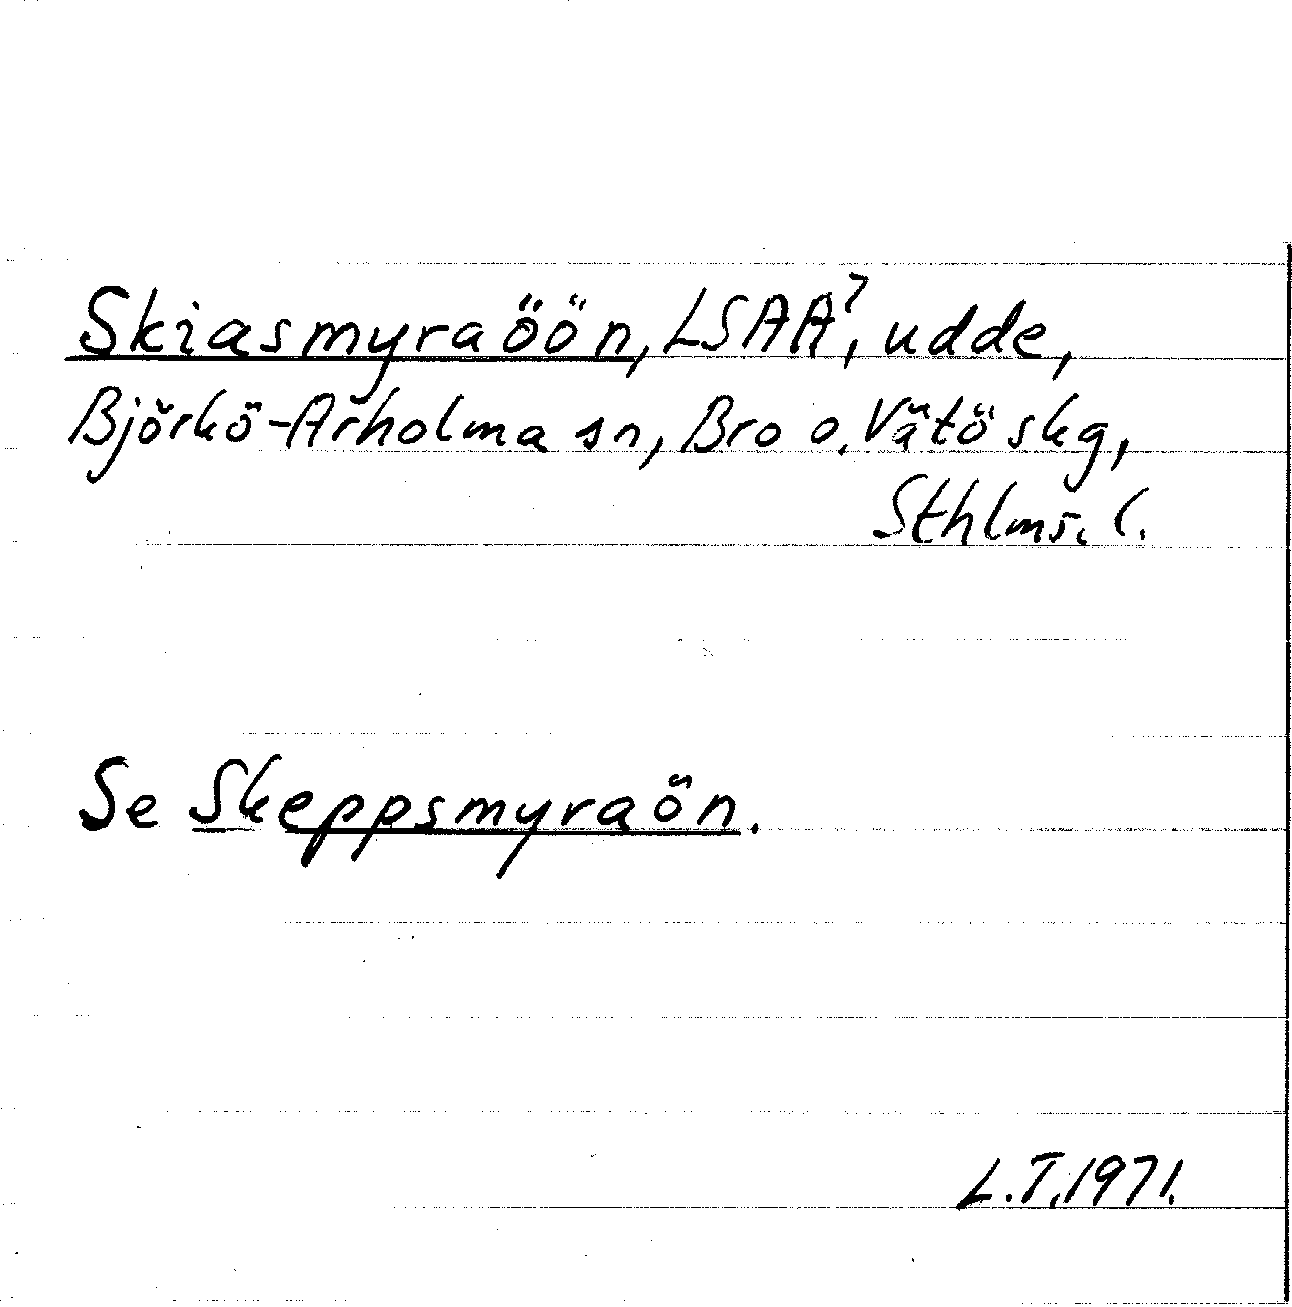 Skiasmyraöön, LSAA?, udde,
Björkö-Arholma sn, Bro o. Vätö skg,
Sthlms. l.
Se Skeppsmyraön.
L.T. 1971.